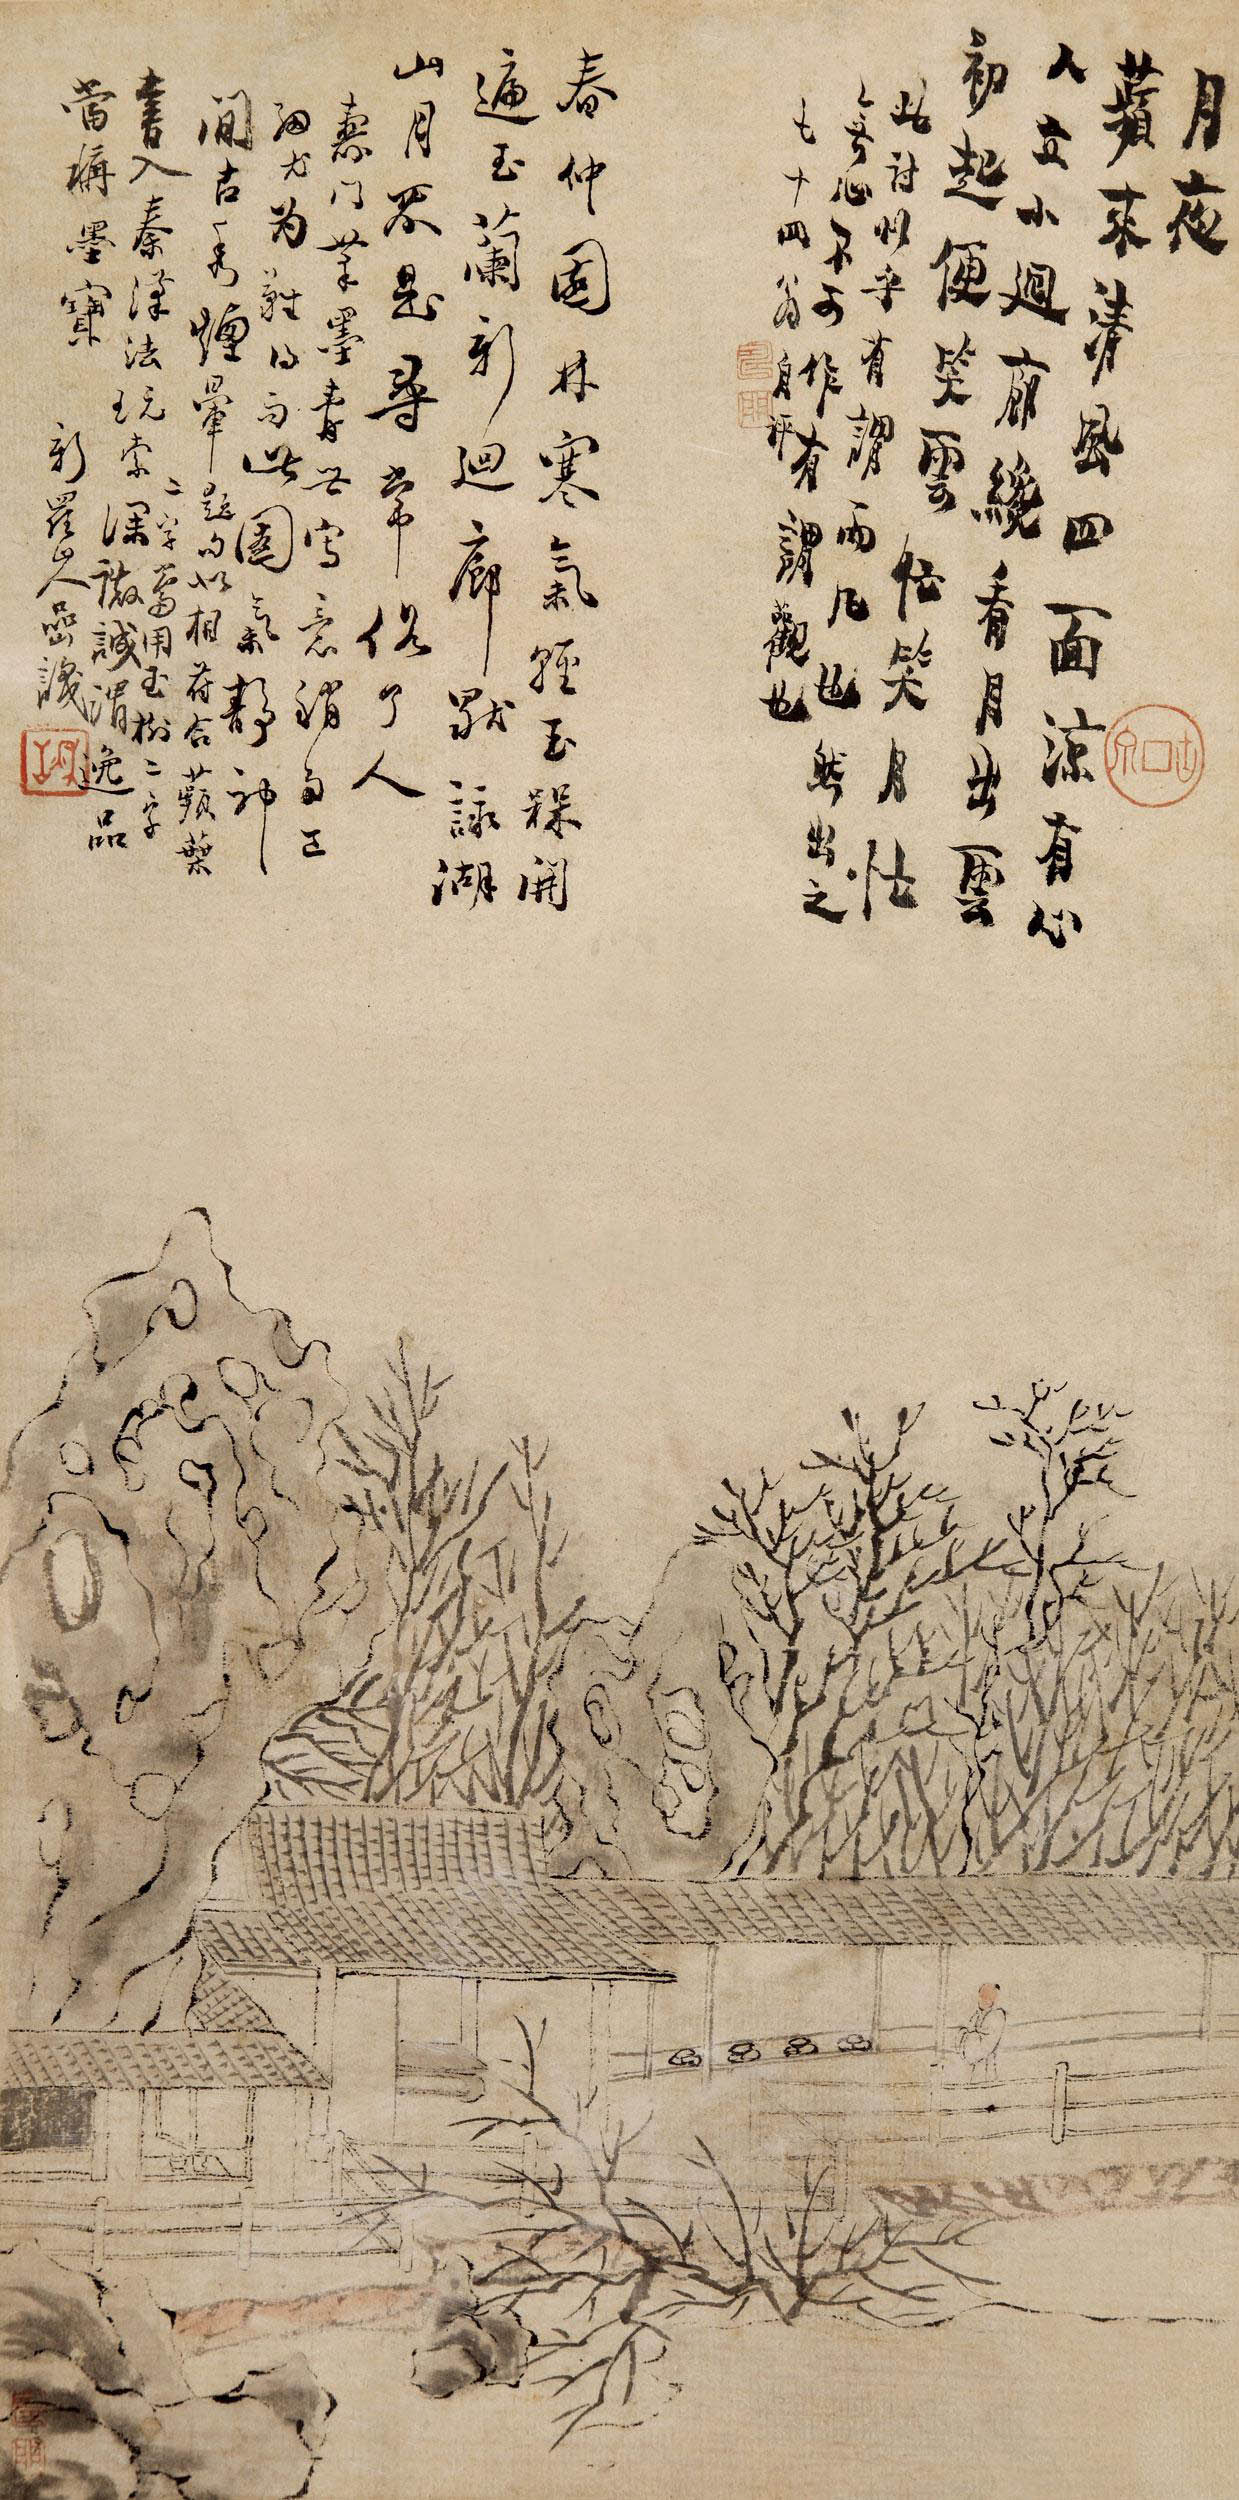 月夜
蘋來清風四面涼有心
人立小迴廊纔看月出雲
初起便笑雲忙笑月忙
此詩似乎有謂而凡也然出之
無心不可作有謂觀也
七十四翁自評
春仲園林寒氣輕玉槑開
遍玉蘭新迴廊默詠湖
山月是尋常俗了人
壽門筆墨專以寫意稍有工
細尤为難得而此園氣靜神
閒古秀煙暈起句以相符合蘋葉
二字當用玉樹二字
書入秦漢法玩索深誠謂逸品
當稱墨寶
新羅山人嵒識